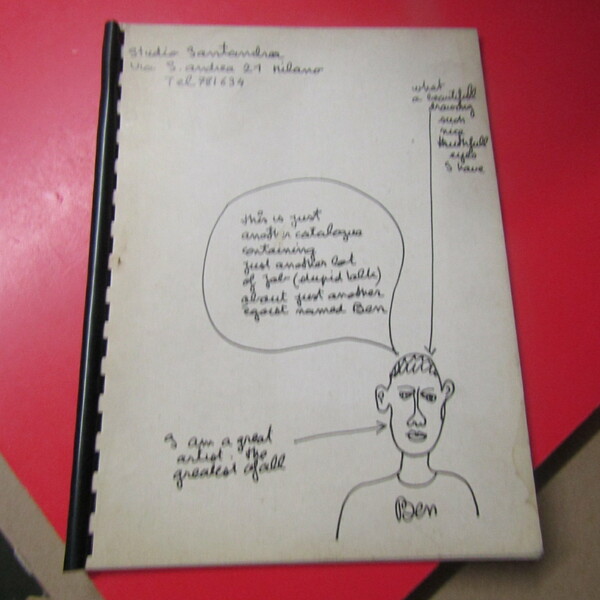 Studio Santandrea
Via S. andrea 21 Milano
Tel 781634
what
a beautifull
drawing
such
nice
truthfull
eyes
I have
this is just
another catalogue
containing
just another lot
of Jab (stupid talk)
about just another
egoist named Ben
I am a great
artist. the
greatest of all
Ben